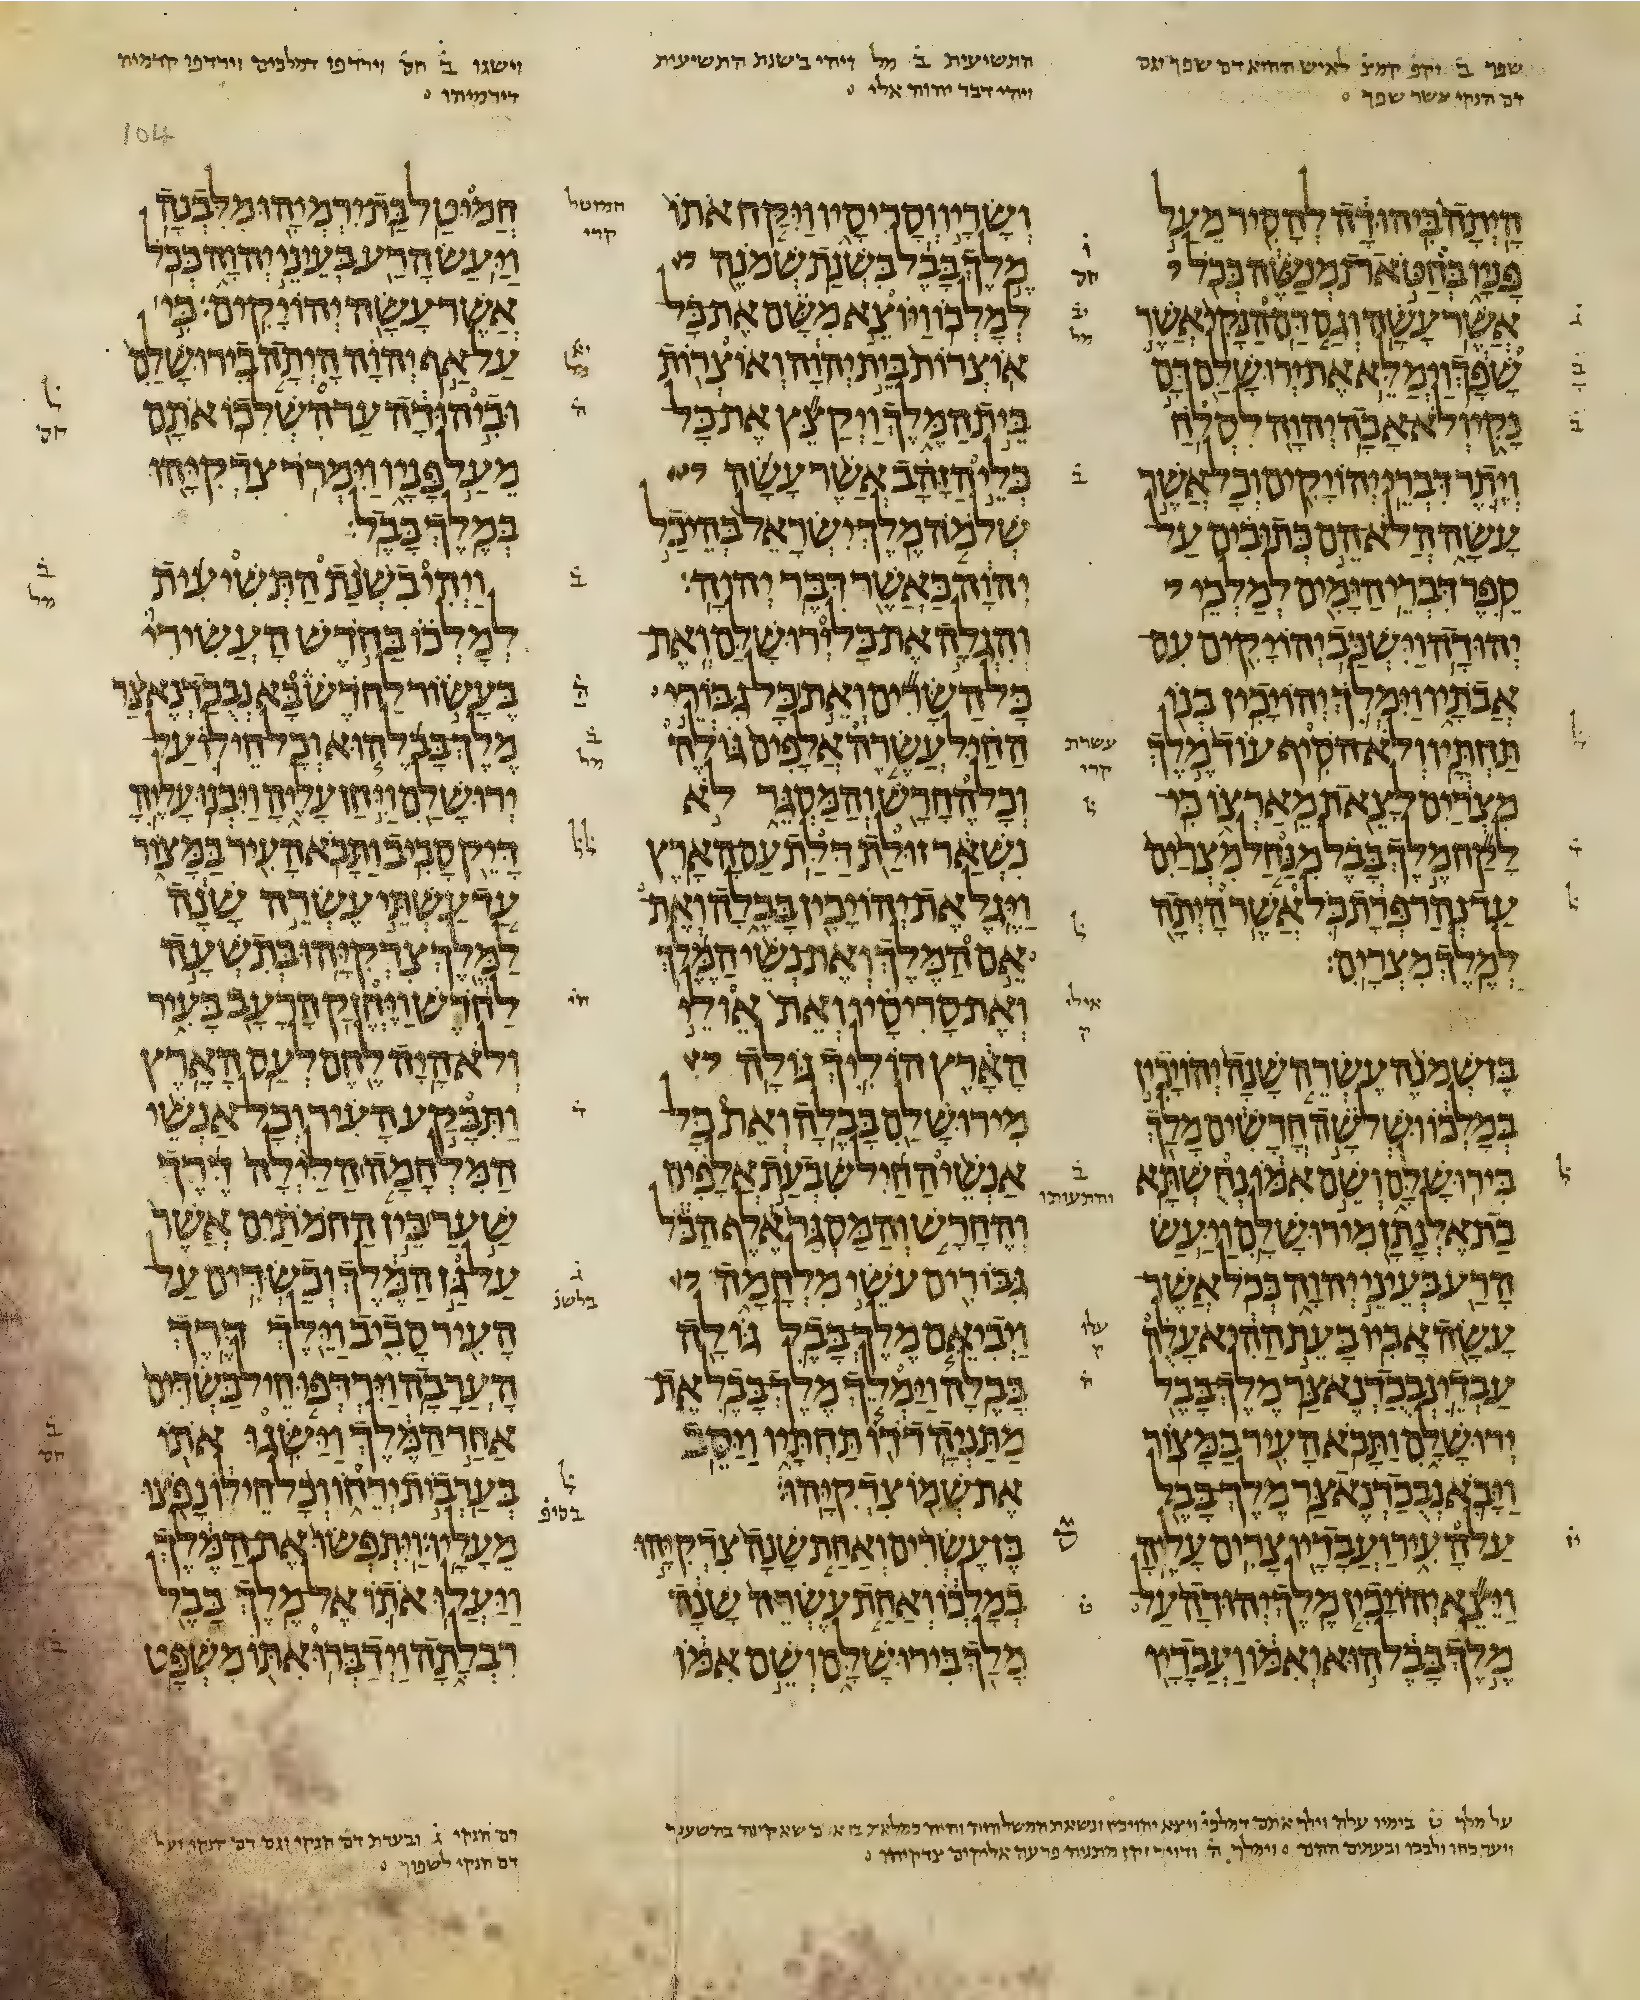 שפך ב וקמצ לאיש ההוא דם שפך וגם
דם הנקי אשר שפך
היתה ביהודה להסיר מעל
פניו בחטאת מנשה ככל
אשר עשה וגם דם הנקי אשר
שפך וימלא את ירושלם דם
נקי ולא אבה יהוה לסלח
ויתר דברי יהויקים וכל אשר
עשה הלא הם כתובים על
ספר דברי הימים למלכי
יהודה וישכב יהויקים עם
אבתיו וימלך יהויכין בנו
תחתיו ולא הסיף עוד מלך
מצרים לצאת מארצו כי
לקח מלך בבל מנחל מצרים
עד נהר פרת כל אשר היתה
למלך מצרים׃
בן שמנה עשרה שנה יהויכין
במלכו ושלשה חדשים מלך
בירושלם ושם אמו נחשתא
בת אלנתן מירושלם ויעש
הרע בעיני יהוה ככל אשר
עשה אביו בעת ההיא עלה
עבדי נבכדנאצר מלך בבל
ירושלם ותבא העיר במצור
ויבא נבכדנאצר מלך בבל
על העיר ועבדיו צרים עליה
ויצא יהויכין מלך יהודה על
מלך בבל הוא ואמו ועבדיו
התשיעית ב מל ויהי בשנת התשיעית
ויהי דבר יהוה אלי
ושריו וסריסיו ויקח אתו
מלך בבל בשנת שמנה
למלכו ויוצא משם את כל
אוצרות בית יהוה ואוצרות
בית המלך ויקצץ את כל
כלי הזהב אשר עשה
שלמה מלך ישראל בהיכל
יהוה כאשר דבר יהוה׃
והגלה את כל ירושלם ואת
כל השרים ואת כל גבורי
החיל עשרה אלפים גולה
וכל החרש והמסגר לא
נשאר זולת דלת עם הארץ
ויגל את יהויכין בבלה ואת
אם המלך ואת נשי המלך
ואת סריסיו ואת אולי
הארץ הוליך גולה
מירושלם בבלה ואת כל
אנשי החיל שבעת אלפים
והחרש והמסגר אלף הכל
גבורים עשי מלחמה
ויביאם מלך בבל גולה
בבלה וימלך מלך בבל את
מתניה דדו תחתיו ויסב
את שמו צדקיהו׃
בן עשרים ואחת שנה צדקיהו
במלכו ואחת עשרה שנה
מלך בירושלם ושם אמו
וישגו ב חס וירדפו דמלכים וירדפו קדמיה
דירמיהו
104
חמיטל בת ירמיהו מלבנה
ויעש הרע בעיני יהוה ככל
אשר עשה יהויקים׃ כי
על אף יהוה היתה בירושלם
וביהודה עד השלכו אתם
מעל פניו וימרד צדקיהו
במלך בבל׃
ויהי בשנת התשיעית
למלכו בחדש העשירי
בעשור לחדש בא נבכדנאצר
מלך בבל הוא וכל חילו על
ירושלם ויחן עליה ויבנו עליה
דיק סביב ותבא העיר במצור
עד עשתי עשרה שנה
למלך צדקיהו בתשעה
לחדש ויחזק הרעב בעיר
ולא היה לחם לעם הארץ
ותבקע העיר וכל אנשי
המלחמה הלילה דרך
שער בין החמתים אשר
על גן המלך וכשדים על
העיר סביב וילך דרך
הערבה וירדפו חיל כשדים
אחר המלך וישגו אתו
בערבות ירחו וכל חילו נפצו
מעליו ויתפשו את המלך
ויעלו אתו אל מלך בבל
רבלתה וידברו אתו משפט
חמוטל
קרי
עשרת
קרי
אילי
ק
עלו
ק
דם הנקי ג ובערת דם הנקי וגם דם הנקי ועל
דם הנקי לשפוך